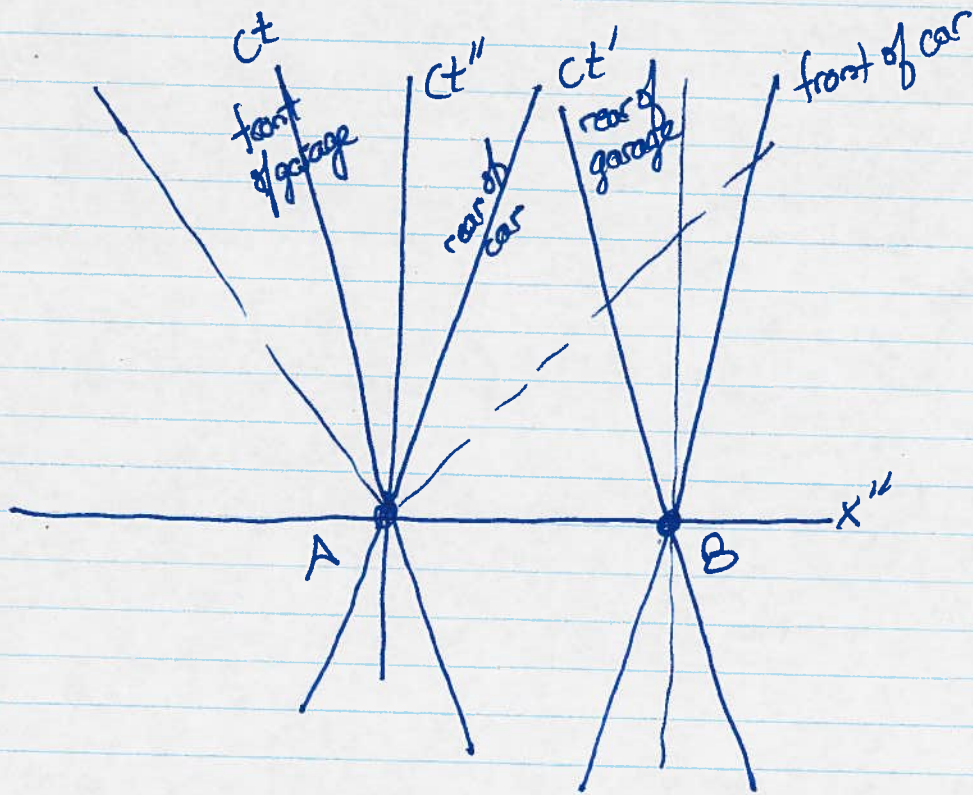 ct
ct"
ct'
front of car
front
of garage
rear of
car
rear of
garage
x"
A
B